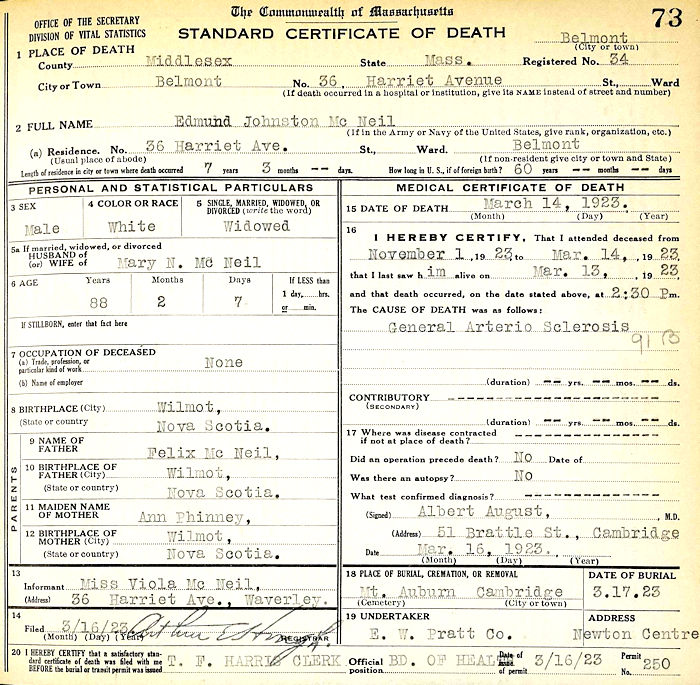 The Commonwealth of Massachusetts
OFFICE OF THE SECRETARY
DIVISION OF VITAL STATISTICS
STANDARD CERTIFICATE OF DEATH
73
Belmont
(City or town)
1 PLACE OF DEATH
County Middlesex State Mass. Registered No. 34
City or Town Belmont No. 36, Harriet Avenue St., Ward
(If death occurred in a hospital or institution, give its NAME instead of street and number)
2 FULL NAME Edmund Johnston Mc Neil
(If in the Army or Navy of the United States, give rank, organization, etc.)
(a) Residence. No. 36 Harriet Ave. St., Ward. Belmont
(Usual place of abode) (If non-resident give city or town and State)
Length of residence in city or town where death occurred 7 years 3 months -- days. How long in U. S., if of foreign birth? 60 years -- months -- days.
PERSONAL AND STATISTICAL PARTICULARS
3 SEX 4 COLOR OR RACE 5 SINGLE, MARRIED, WIDOWED, OR
DIVORCED (write the word)
Male White Widowed
5a If married, widowed, or divorced
HUSBAND of
(or) WIFE of Mary N. Mc Neil
6 AGE Years Months Days If LESS than
1 day,....hrs.
or....min.
88 2 7
If STILLBORN, enter that fact here
7 OCCUPATION OF DECEASED
(a) Trade, profession, or
particular kind of work None
(b) Name of employer
8 BIRTHPLACE (City) Wilmot,
(State or country) Nova Scotia.
PARENTS
9 NAME OF
FATHER Felix Mc Neil,
10 BIRTHPLACE OF
FATHER (City) Wilmot,
(State or country) Nova Scotia.
11 MAIDEN NAME
OF MOTHER Ann Phinney,
12 BIRTHPLACE OF
MOTHER (City) Wilmot,
(State or country) Nova Scotia.
13
Informant Miss Viola Mc Neil,
(Address) 36 Harriet Ave., Waverley.
14
Filed 3/16/23
(Month) (Day) (Year) REGISTRAR
MEDICAL CERTIFICATE OF DEATH
15 DATE OF DEATH March 14, 1923.
(Month) (Day) (Year)
16
I HEREBY CERTIFY, That I attended deceased from
November 1, 19 23 to Mar. 14, , 19 23
that I last saw h im alive on Mar. 13, , 19 23
and that death occurred, on the date stated above, at 2:30 P m.
The CAUSE OF DEATH was as follows:
General Arterio Sclerosis
91 B
(duration) -- yrs. -- mos. -- ds.
CONTRIBUTORY
(SECONDARY)
(duration) -- yrs. -- mos. -- ds.
17 Where was disease contracted
if not at place of death?
Did an operation precede death? No Date of
Was there an autopsy? No
What test confirmed diagnosis?
(Signed) Albert August, , M.D.
(Address) 51 Brattle St., Cambridge
Date Mar. 16, 1923.
(Month) (Day) (Year)
18 PLACE OF BURIAL, CREMATION, OR REMOVAL DATE OF BURIAL
Mt. Auburn Cambridge 3.17.23
(Cemetery) (City or town)
19 UNDERTAKER ADDRESS
E. W. Pratt Co. Newton Centre
20 I HEREBY CERTIFY that a satisfactory stan-
dard certificate of death was filed with me
BEFORE the burial or transit permit was issued T. F. HARRIS CLERK Official
position BD. OF HEALTH Date of
issue of 3/16/23 Permit
No. 250